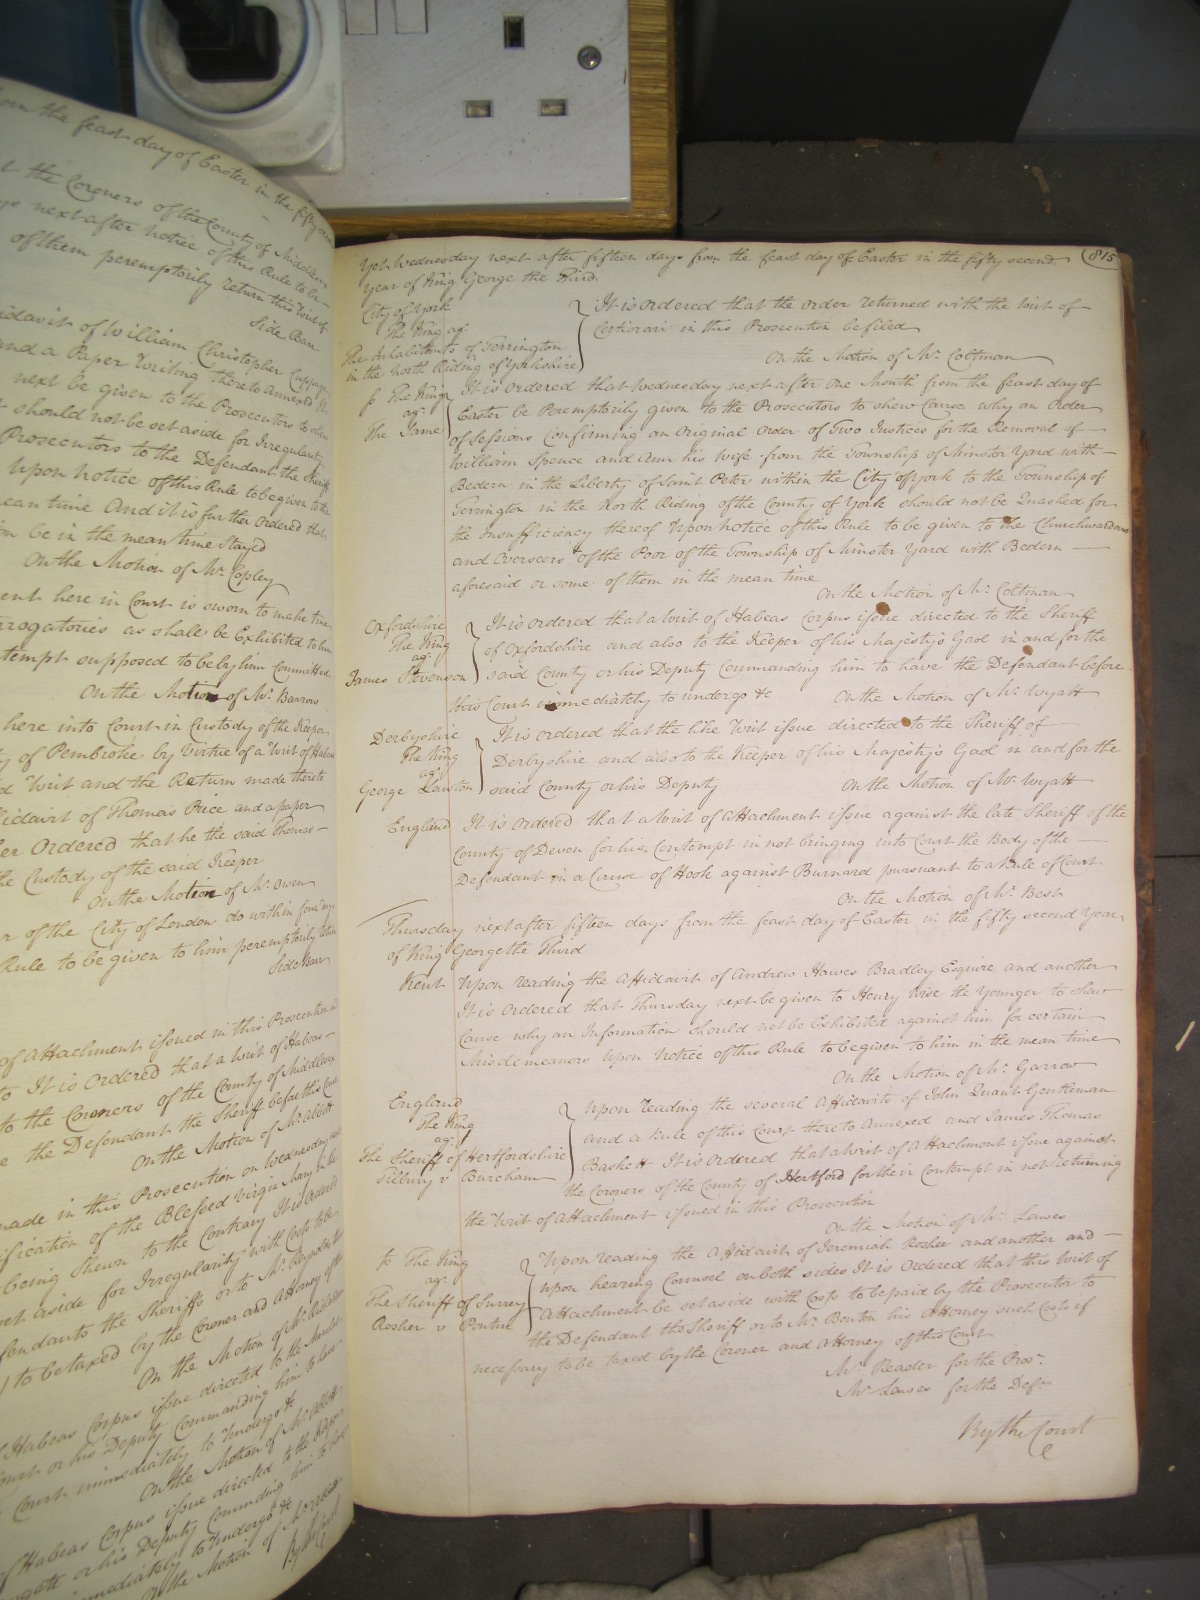 from the feast day of Easter in the fifty second
t the Coroners of the County of Middlesex
ys next after notice of this Rule to be
of them peremptorily return this Writ of
Side Bar
idavit of William Christopher
and a Paper Writing thereto Annexed
next be given to the Prosecutors to shew
should not be set aside for Irregularity
Prosecutors to the Defendant the Sheriff
Upon notice of this Rule to be given to the
mean time And it is further Ordered that
n be in the mean time Stayed
On the Motion of Mr. Copley
ent here in Court is sworn to make true
rrogatories as shall be Exhibited to him
tempt supposed to be by him Committed
On the Motion of Mr. Barrow
here into Court in Custody of the Keeper
ty of Pembroke by Virtue of a Writ of Habeas
d Writ and the Return made thereto
fidavit of Thomas Price and a paper
er Ordered that he the said Thomas
he Custody of the said Keeper
On the Motion of Mr. Owen
r of the City of London do within four days
Rule to be given to him peremptorily return
Side Bar
of Attachment issued in this Prosecution
to It is Ordered that a Writ of Habeas
to the Coroners of the County of Middlesex
e the Defendant the Sheriff before this Court
On the Motion of Mr. Abbott
made in this Prosecution on Wednesday
ification of the Blessed Virgin Mary in the
being Shewn to the Contrary It is Ordered
set aside for Irregularity with Costs to be
fendants the Sheriffs or to Mr. Reynolds
) to be taxed by the Coroner and Attorney of the
On the Motion of Mr.
f Habeas Corpus issue directed to the
Court or his Deputy Commanding him to have
Court immediately to undergo &c
On the Motion of Mr. Abbott
f Habeas Corpus issue directed to the Keeper
ngate or his Deputy Commanding him to
immediately to undergo &c
On the Motion of Mr.
By the Court
815
Yet Wednesday next after fifteen days from the feast day of Easter in the fifty second
Year of King George the Third
City of York
The King
agt.
The Inhabitants of Terrington
in the North Riding of Yorkshire
It is ordered that the order returned with the Writ of
Certiorari in this Prosecution be filed
On the Motion of Mr. Coltman
The King
agt.
The Same
It is ordered that Wednesday next after one Month from the feast day of
Easter be Peremptorily given to the Prosecutors to shew Cause why an Order
of Sessions Confirming an Original Order of Two Justices for the Removal of
William Spence and Ann his wife from the Township of Minster Yard with
Bedern in the Liberty of Saint Peter within the City of York to the Township of
Terrington in the North Riding of the County of York should not be Quashed for
the Insufficiency thereof Upon notice of this Rule to be given to the Churchwardens
and Overseers of the Poor of the Township of Minster Yard with Bedern
aforesaid or some of them in the mean time
On the Motion of Mr. Coltman
Oxfordshire
The King
agt.
James Stevenson
It is ordered that a Writ of Habeas Corpus issue directed to the Sheriff
of Oxfordshire and also to the Keeper of his Majesty's Gaol in and for the
said County or his Deputy Commanding him to have the Defendant before
this Court immediately to undergo &c
On the Motion of Mr. Wyatt
Derbyshire
The King
agt.
George
It is ordered that the like Writ issue directed to the Sheriff of
Derbyshire and also to the Keeper of his Majesty's Gaol in and for the
said County or his Deputy
On the Motion of Mr. Wyatt
England
It is ordered that a Writ of Attachment issue against the late Sheriff of the
County of Devon for his Contempt in not bringing into Court the Body of the
Defendant in a Cause of Hook against Burnard pursuant to a Rule of Court
On the Motion of Mr. Best
Thursday next after fifteen days from the feast day of Easter in the fifty second Year
of King George the Third
Kent
Upon reading the Affidavit of Andrew Hawes Bradley Esquire and another
It is ordered that Thursday next be given to Henry Wise the Younger to shew
Cause why an Information should not be Exhibited against him for certain
Misdemeanors Upon Notice of this Rule to be given to him in the mean time
On the Motion of Mr. Garrow
England
The King
agt.
The Sheriff of Hertfordshire
Tilbury v Burcham
Upon reading the several Affidavits of John Quant Gentleman
and a Rule of this Court thereto Annexed and James Thomas
Baskett It is ordered that a Writ of Attachment issue against
the Coroners of the County of Hertford for their Contempt in not returning
the Writ of Attachment issued in this Prosecution
On the Motion of Mr. Lawes
The King
agt.
The Sheriff of Surrey
Rosher v Pontin
Upon reading the Affidavit of Jeremiah Rosher and another and
upon hearing Counsel on both sides It is ordered that this Writ of
Attachment be set aside with Costs to be paid by the Prosecutor to
the Defendant the Sheriff or to Mr. Bonton his Attorney such Costs if
necessary to be taxed by the Coroner and Attorney of this Court
Mr. Reader for the Pros.
Mr. Lawes for the Deft.
By the Court